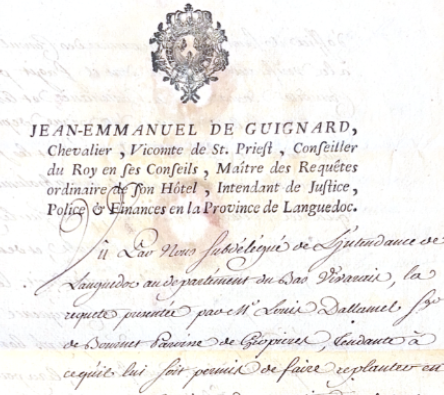 JEAN-EMMANUEL DE GUIGNARD,
Chevalier, Vicomte de St. Prieſt, Conſeiller
du Roy en ſes Conſeils, Maître des Requêtes
ordinaire de ſon Hôtel, Intendant de Juſtice,
Police & Finances en la Province de Languedoc.
Vû Par Nous Subdelegué de L'Intendance de
Languedoc au departement du Bas Vivarais, la
requete presentée par Mr. Louis Dallamel Sgr
de Bournet Paroisse de Gropieres, tendante à
ce qu'il lui soit permis de faire replanter en